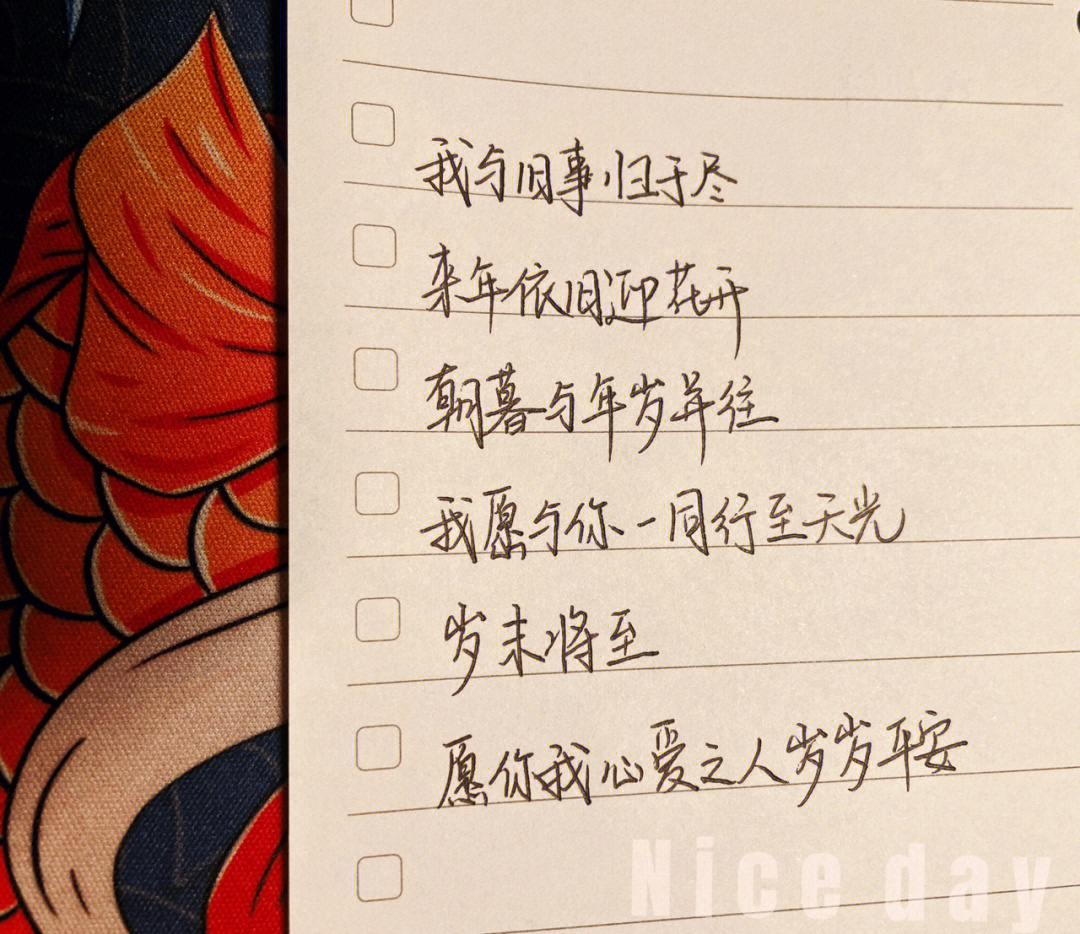 我与旧事归于尽
来年依旧迎花开
朝暮与年岁并往
我愿与你一同行至天光
岁末将至
愿你我心爱之人岁岁平安
Nice day